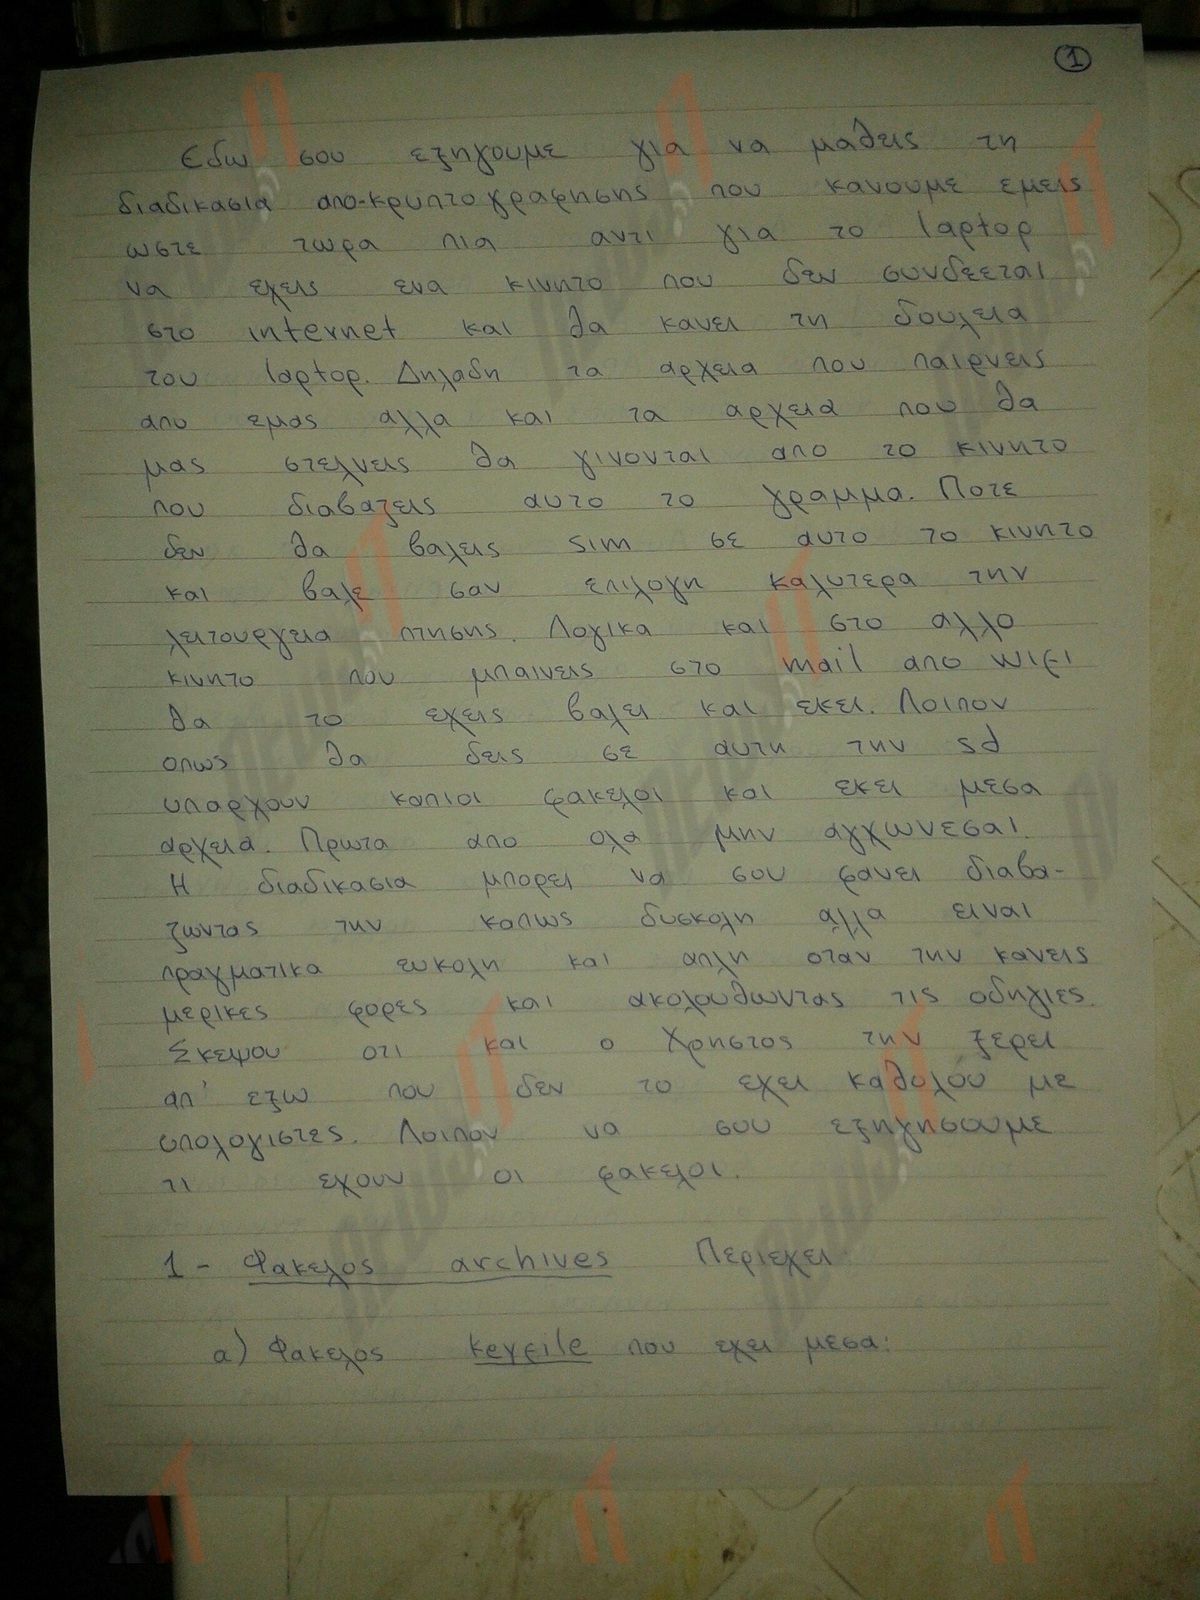 1
Εδω σου εξηγουμε για να μαθεις τη
διαδικασια απο-κρυπτογραφησης που κανουμε εμεις
ωστε τωρα πια αντι για το laptop
να εχεις ενα κινητο που δεν συνδεεται
στο internet και θα κανει τη δουλεια
του laptop. Δηλαδη τα αρχεια που παιρνεις
απο εμας αλλα και τα αρχεια που θα
μας στελνεις θα γινονται απο το κινητο
που διαβαζεις αυτο το γραμμα. Ποτε
δεν θα βαλεις sim σε αυτο το κινητο
και βαλε σαν επιλογη καλυτερα την
λειτουργεια πτησης. Λογικα και στο αλλο
κινητο που μπαινεις στο mail απο wifi
θα το εχεις βαλει και εκει. Λοιπον
οπως θα δεις σε αυτη την sd
υπαρχουν καπιοι φακελοι και εκει μεσα
αρχεια. Πρωτα απο ολα μην αγχωνεσαι.
Η διαδικασια μπορει να σου φανει διαβα-
ζωντας την καπως δυσκολη αλλα ειναι
πραγματικα ευκολη και απλη οταν την κανεις
μερικες φορες και ακολουθωντας τις οδηγιες.
Σκεψου οτι και ο Χρηστος την ξερει
απ' εξω που δεν το εχει καθολου με
υπολογιστες. Λοιπον να σου εξηγησουμε
τι εχουν οι φακελοι.
1 - Φακελος archives Περιεχει
α) Φακελος keyfile που εχει μεσα: